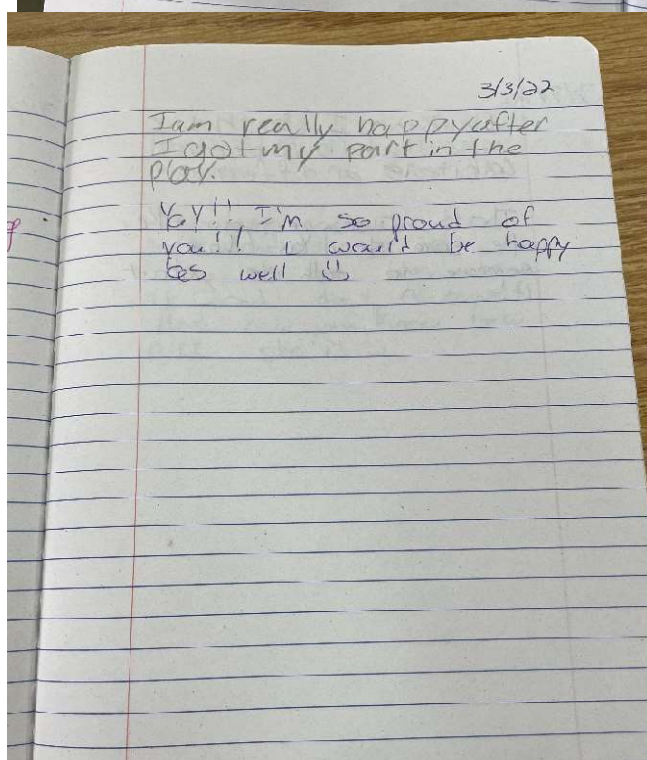 3/3/22
I am really happy after
I got my part in the
play.
Yay!! I'm so proud of
you!! I would be happy
as well ☺